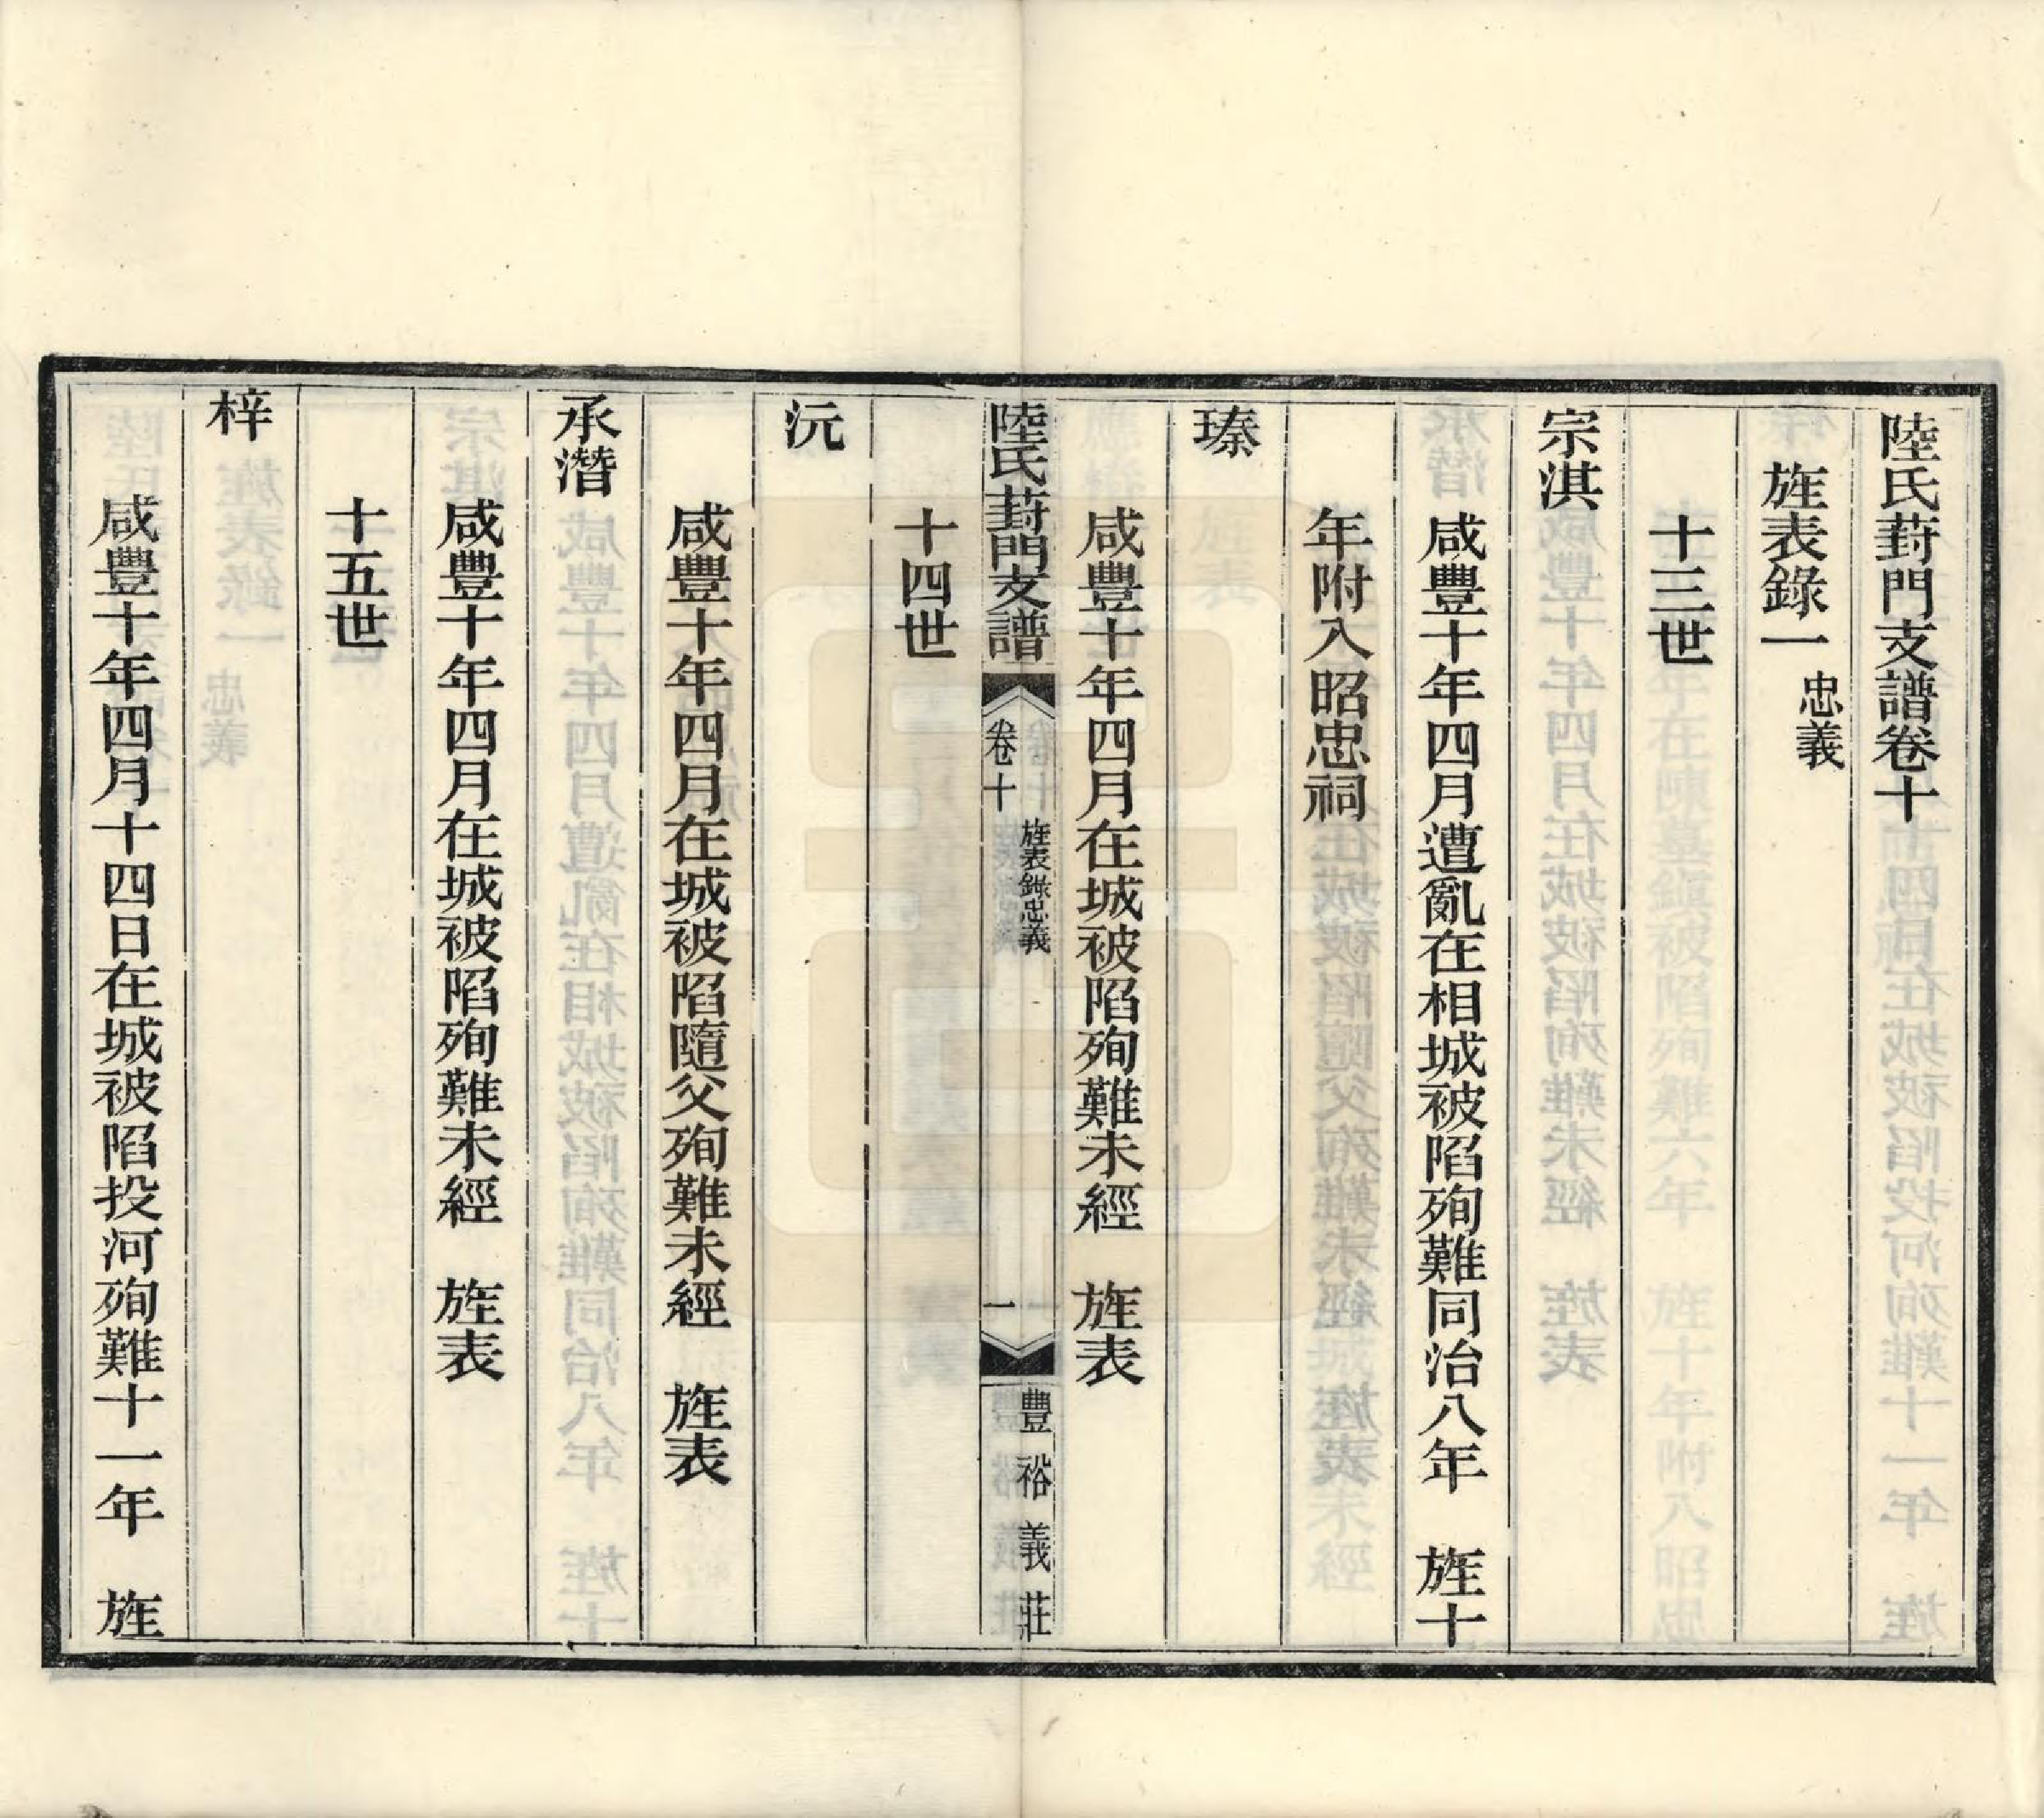 陸氏葑門支譜卷十
旌表錄一 忠義
十三世
宗淇
咸豐十年四月遭亂在相城被陷殉難同治八年 旌十
年附入昭忠祠
瑧
咸豐十年四月在城被陷殉難未經 旌表
陸氏葑門支譜 卷十 旌表錄忠義 一 豐裕義莊
十四世
沅
咸豐十年四月在城被陷隨父殉難未經 旌表
承潛
咸豐十年四月在城被陷殉難未經 旌表
十五世
梓
咸豐十年四月十四日在城被陷投河殉難十一年 旌